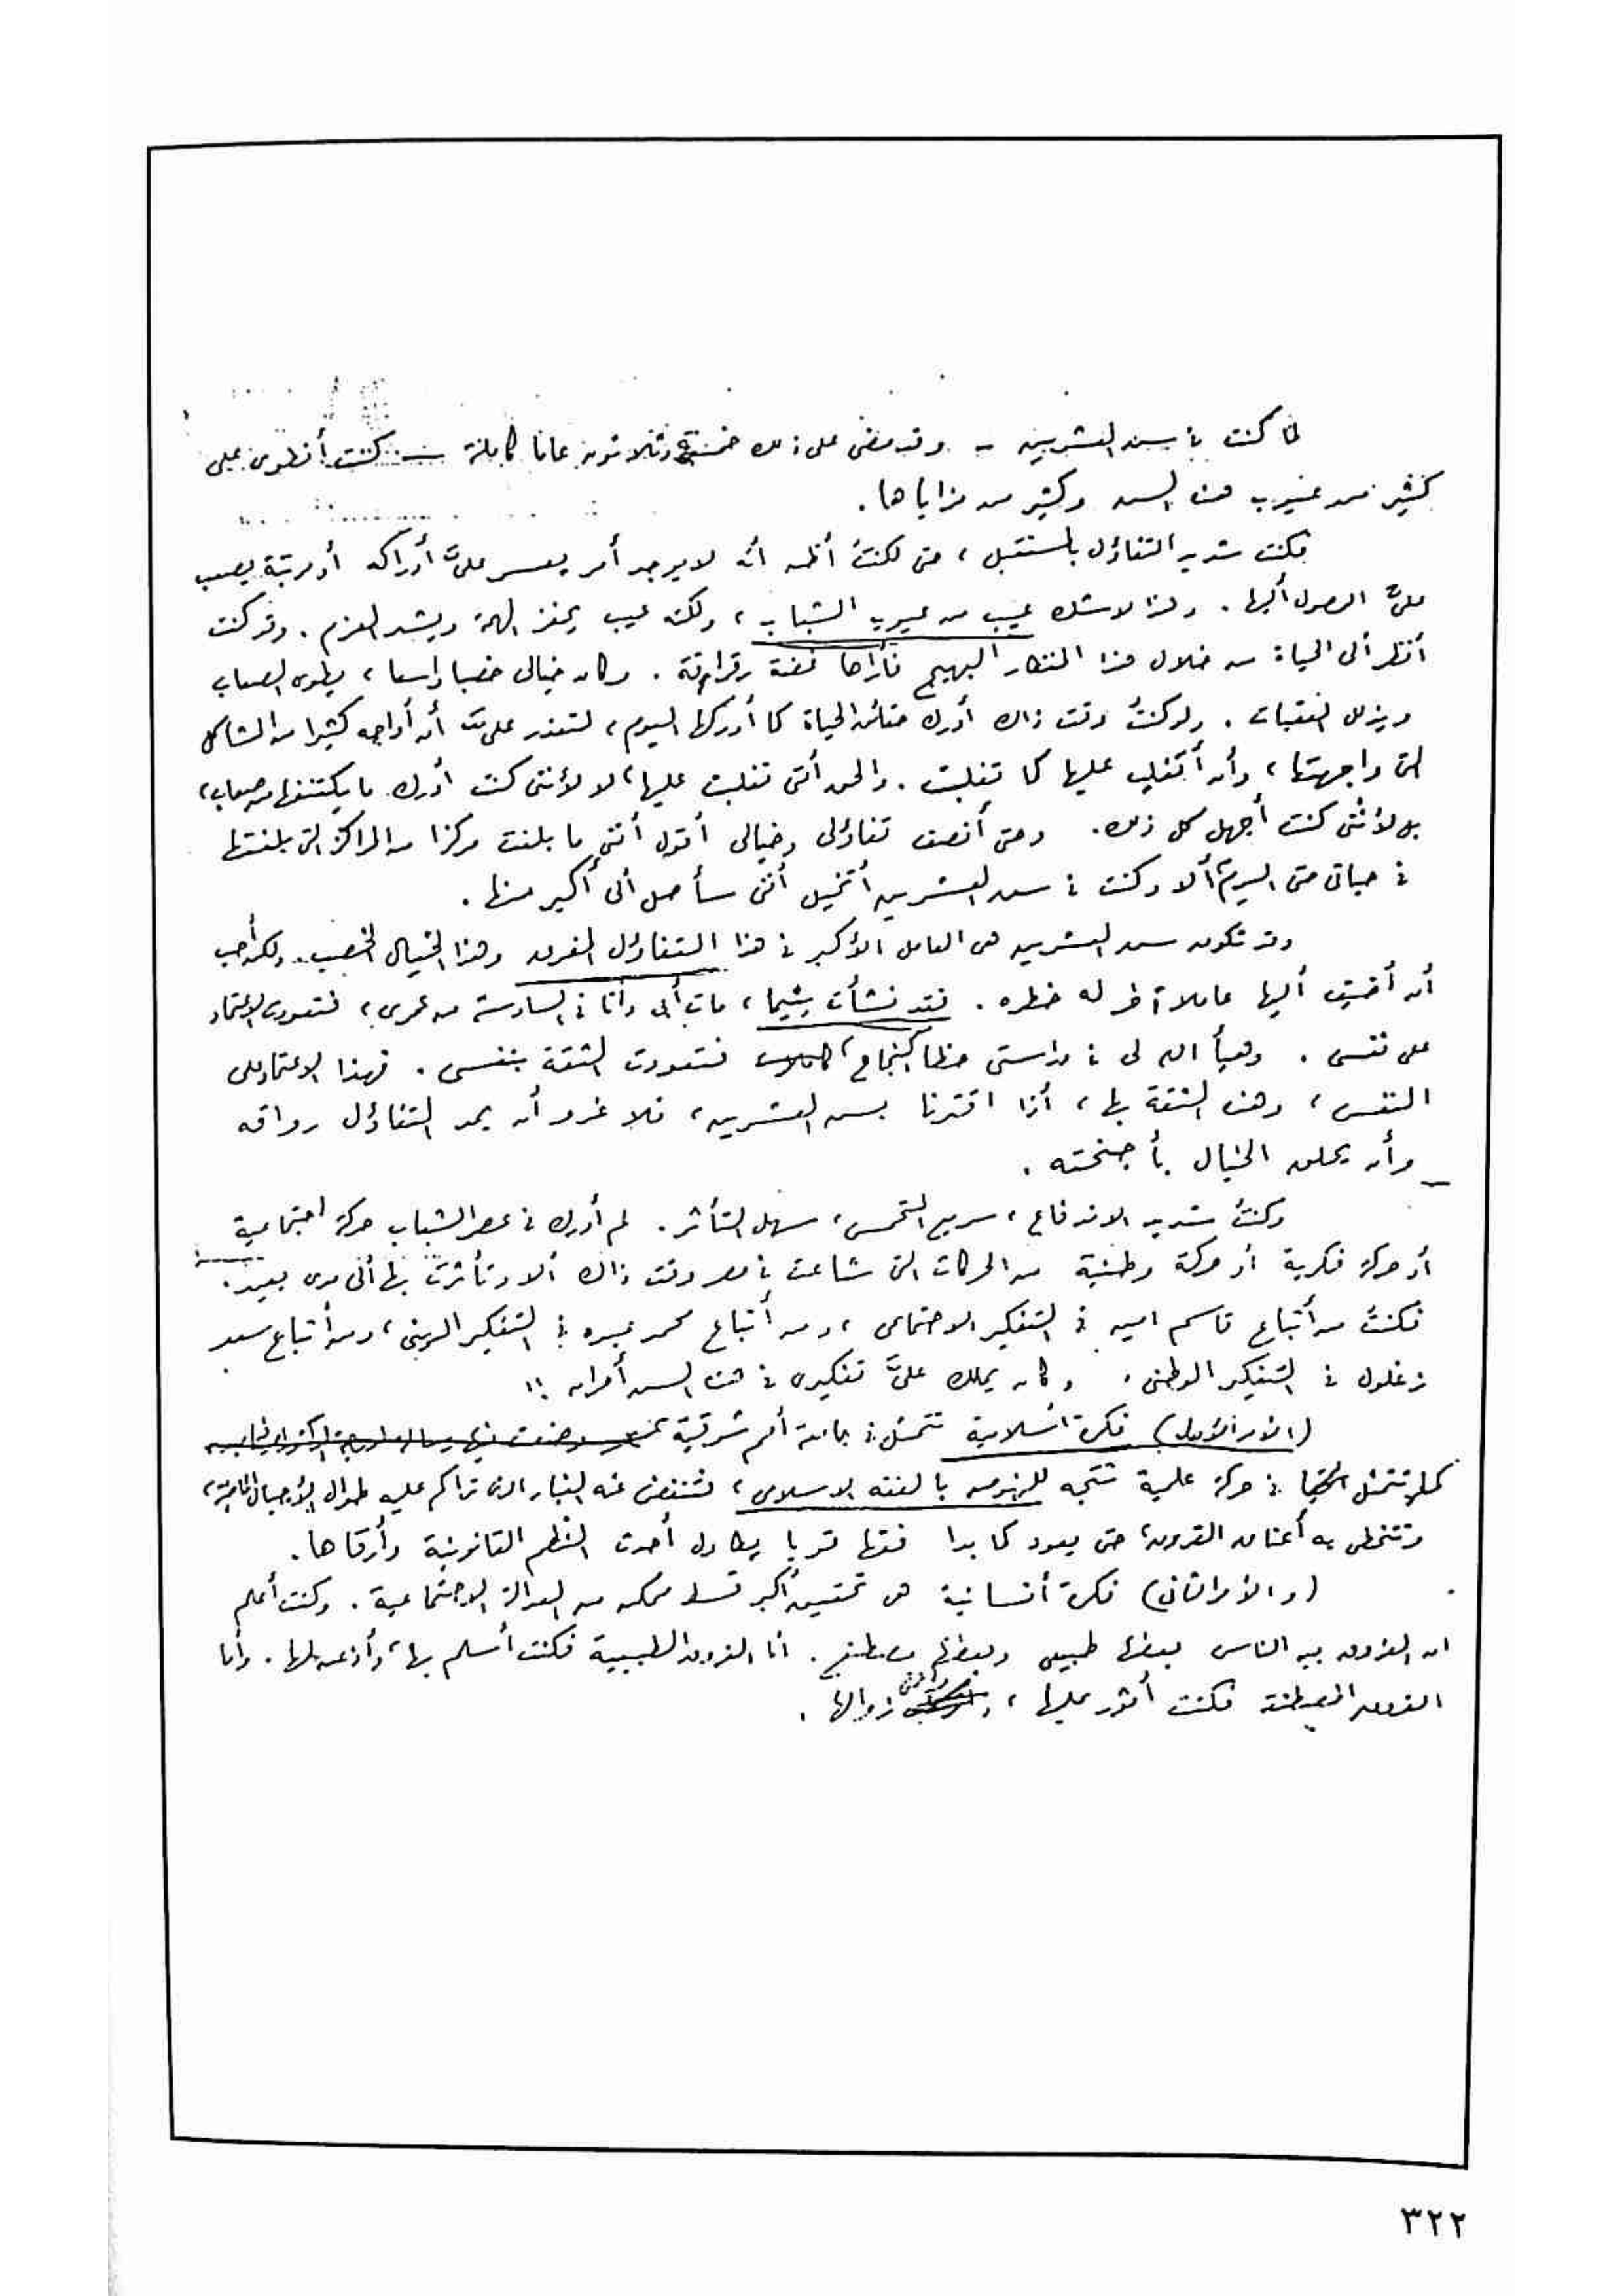 لما كنت فى سن العشرين - وقد مضى على ذلك خمسة وثلاثون عاما كاملة - كنت أنطوى على
كثير من عيوب هذه السن وكثير من مزاياها .
فكنت شديد التفاؤل بالمستقبل ، حتى لكنتُ أظن أنه لا يوجد أمر يعسر علىَّ أدراكه أو مرتبة يصعب
علىَّ الوصول أليها . وهذا لا شك عيب من عيوب الشباب ، ولكنه عيب يحفز الهمة ويشد العزم . وقد كنت
أنظر ألى الحياة من خلال هذا المنظار البهيج فأراها غضة رقراقة . وكان خيالى خصبا واسعا ، يطوى الصعاب
ويذلل العقبات . ولو كنتُ وقت ذاك أدرك حقائق الحياة كما أدركها اليوم ، لتعذر علىَّ أن أواجه كثيرا من المشاكل
التى واجهتها ، وأن أتغلب عليها كما تغلبت . والحق أننى تغلبت عليها ، لا لأننى كنت أدرك ما يكتنفها من صعاب ،
بل لأننى كنت أجهل كل ذلك . وحتى أنصف تفاؤلى وخيالى أقول أننى ما بلغت مركزا من المراكز التى بلغتها
فى حياتى حتى اليوم ألا وكنت فى سن العشرين أتخيل أننى سأصل ألى أكبر منها .
وقد تكون سن العشرين هى العامل الأكبر فى هذا التفاؤل المفرط وهذا الخيال الخصب . ولكن أحب
أن أضيف أليها عاملا آخر له خطره . فقد نشأت يتيما ، مات أبى وأنا فى السادسة من عمرى ، فتعودت الاعتماد
على نفسى . وهيأ الله لى فى دراستى حظا من النجاح ، فتعودت الثقة بنفسى . فهذا الاعتماد على
النفس ، وهذه الثقة بها ، أذا اقترنا بسن العشرين ، فلا غرو أن يمد التفاؤل رواقه
وأن يحلق الخيال بأجنحته .
وكنتُ شديد الاندفاع ، سريع التحمس ، سهل التأثر . لم أدرك فى عصر الشباب حركة اجتماعية
أو حركة فكرية أو حركة وطنية من الحركات التى شاعت فى مصر وقت ذاك ألا وتأثرت بها ألى مدى بعيد .
فكنتُ من أتباع قاسم امين فى التفكير الاجتماعى ، ومن أتباع محمد عبده فى التفكير الدينى ، ومن أتباع سعد
زغلول فى التفكير الوطنى . وكان يملك علىَّ تفكيرى فى هذه السن أمران :
(الأمر الأول) فكرة اسلامية تتمثل فى جامعة أمم شرقية
كما تتمثل فى حركة علمية تتجه للنهوض بالفقه الاسلامى ، فتنفض عنه الغبار الذى تراكم عليه طوال الأجيال الماضية ،
وتتخطى به أعناق القرون ، حتى يعود كما بدا فقها قويا يطاول أحدث النظم القانونية وأرقاها .
(والأمر الثانى) فكرة أنسانية هى تحقيق أكبر قسط ممكن من العدالة الاجتماعية . وكنت أعلم
ان الفروق بين الناس بعضها طبيعى وبعضها مصطنع . أما الفروق الطبيعية فكنت أسلم بها ، وأذعن لها . وأما
الفروق المصطنعة فكنت أثور عليها ، زوالها .
٣٢٢